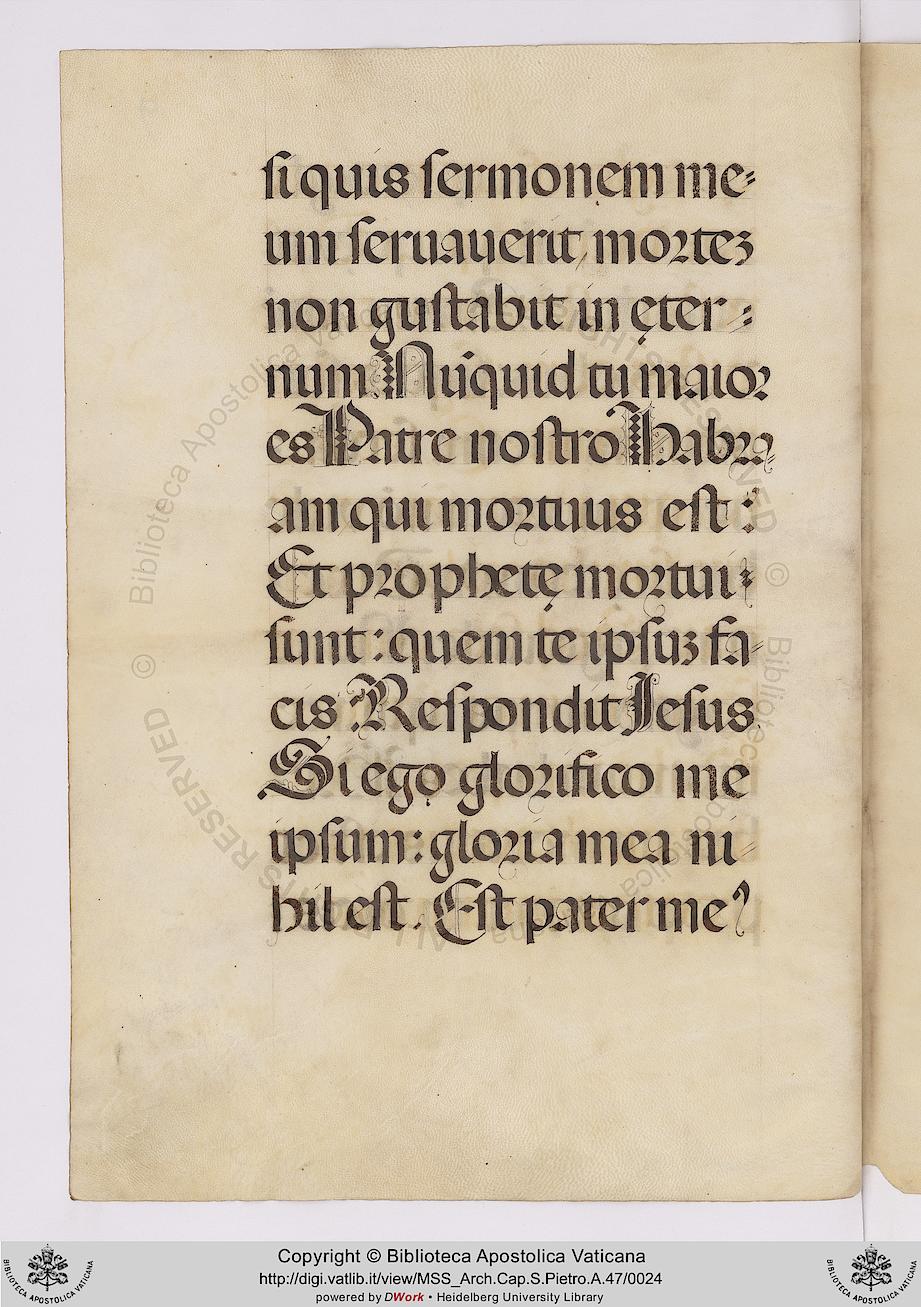 si quis sermonem me⸗
um seruauerit, mortez
non gustabit in ęter⸗
num. Nūquid tu maior
es Patre nostro Habra-
am qui mortuus est :
Et prophetę mortui⸗
sunt : quem te ipsuz fa-
cis? Respondit Jesus
Si ego glorifico me
ipsum : gloria mea ni-
hil est. Est pater meꝰ
Copyright © Biblioteca Apostolica Vaticana
http://digi.vatlib.it/view/MSS_Arch.Cap.S.Pietro.A.47/0024
powered by DWork • Heidelberg University Library
BIBLIOTECA APOSTOLICA VATICANA
BIBLIOTECA APOSTOLICA VATICANA